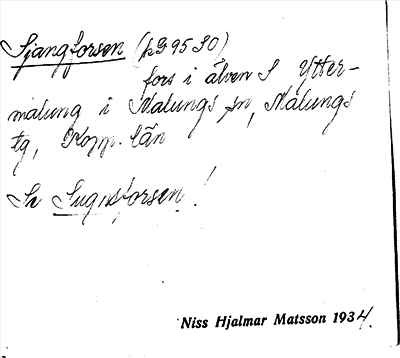 Sjangforsen (p295SO)
fors i älven S Ytter-
malung i Malungs sn, Malungs
tg, Kopp. län
Se Sugnforsen!
Niss Hjalmar Matsson 1934.